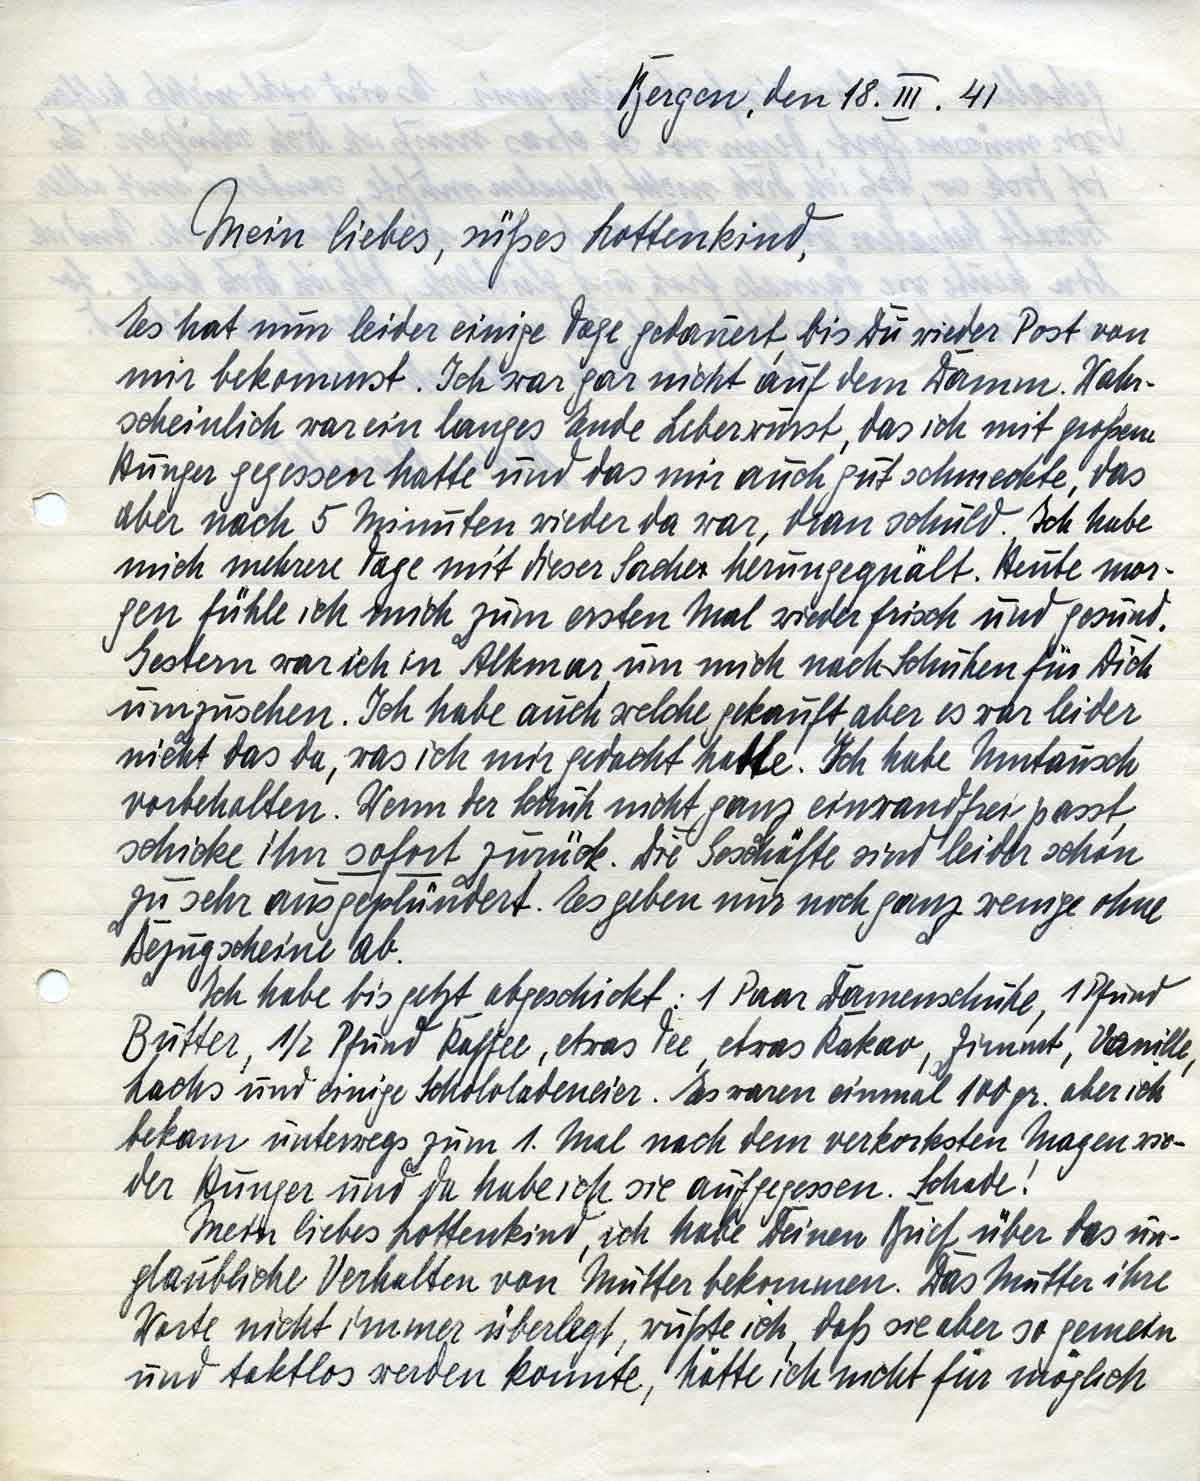 Bergen, den 18. III. 41
Mein liebes, süßes Lottenkind,
Es hat nun leider einige Tage gedauert, bis Du wieder Post von
mir bekommst. Ich war gar nicht auf dem Damm. Wahr-
scheinlich war ein langes Ende Leberwurst, das ich mit großem
Hunger gegessen hatte und das mir auch gut schmeckte, das
aber nach 5 Minuten wieder da war, dran schuld. Ich habe
mich mehrere Tage mit dieser Sache herumgequält. Heute mor-
gen fühle ich mich zum ersten Mal wieder frisch und gesund.
Gestern war ich in Alkmar, um mich nach Schuhen für Dich
umzusehen. Ich habe auch welche gekauft, aber es war leider
nicht das da, was ich mir gedacht hatte. Ich habe Umtausch
vorbehalten. Wenn der Schuh nicht ganz einwandfrei passt,
schicke ihn sofort zurück. Die Geschäfte sind leider schon
zu sehr ausgeplündert. Es geben nur noch ganz wenige ohne
Bezugscheine ab.
Ich habe bis jetzt abgeschickt: 1 Paar Damenschuhe, 1 Pfund
Butter, 1/2 Pfund Kaffee, etwas Tee, etwas Kakao, Zimmt, Vanille,
Lachs und einige Schokoladeneier. Es waren einmal 100 gr. aber ich
bekam unterwegs zum 1. Mal nach dem verkorksten Magen wie-
der Hunger und da habe ich sie aufgegessen. Schade!
Mein liebes Lottenkind, ich habe Deinen Brief über das un-
glaubliche Verhalten von Mutter bekommen. Das Mutter ihre
Worte nicht immer überlegt, wußte ich, daß sie aber so gemein
und taktlos werden konnte, hätte ich nicht für möglich